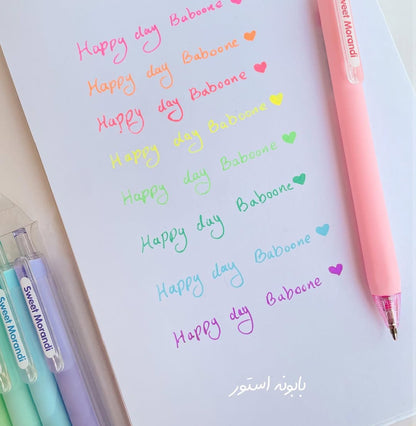 Happy day Baboone
Happy day Baboone
Happy day Baboone
Happy day Baboone
Happy day Baboone
Happy day Baboone
Happy day Baboone
Happy day Baboone
Sweet Morandi
Sweet Morandi
Sweet Morandi
بابونه استور